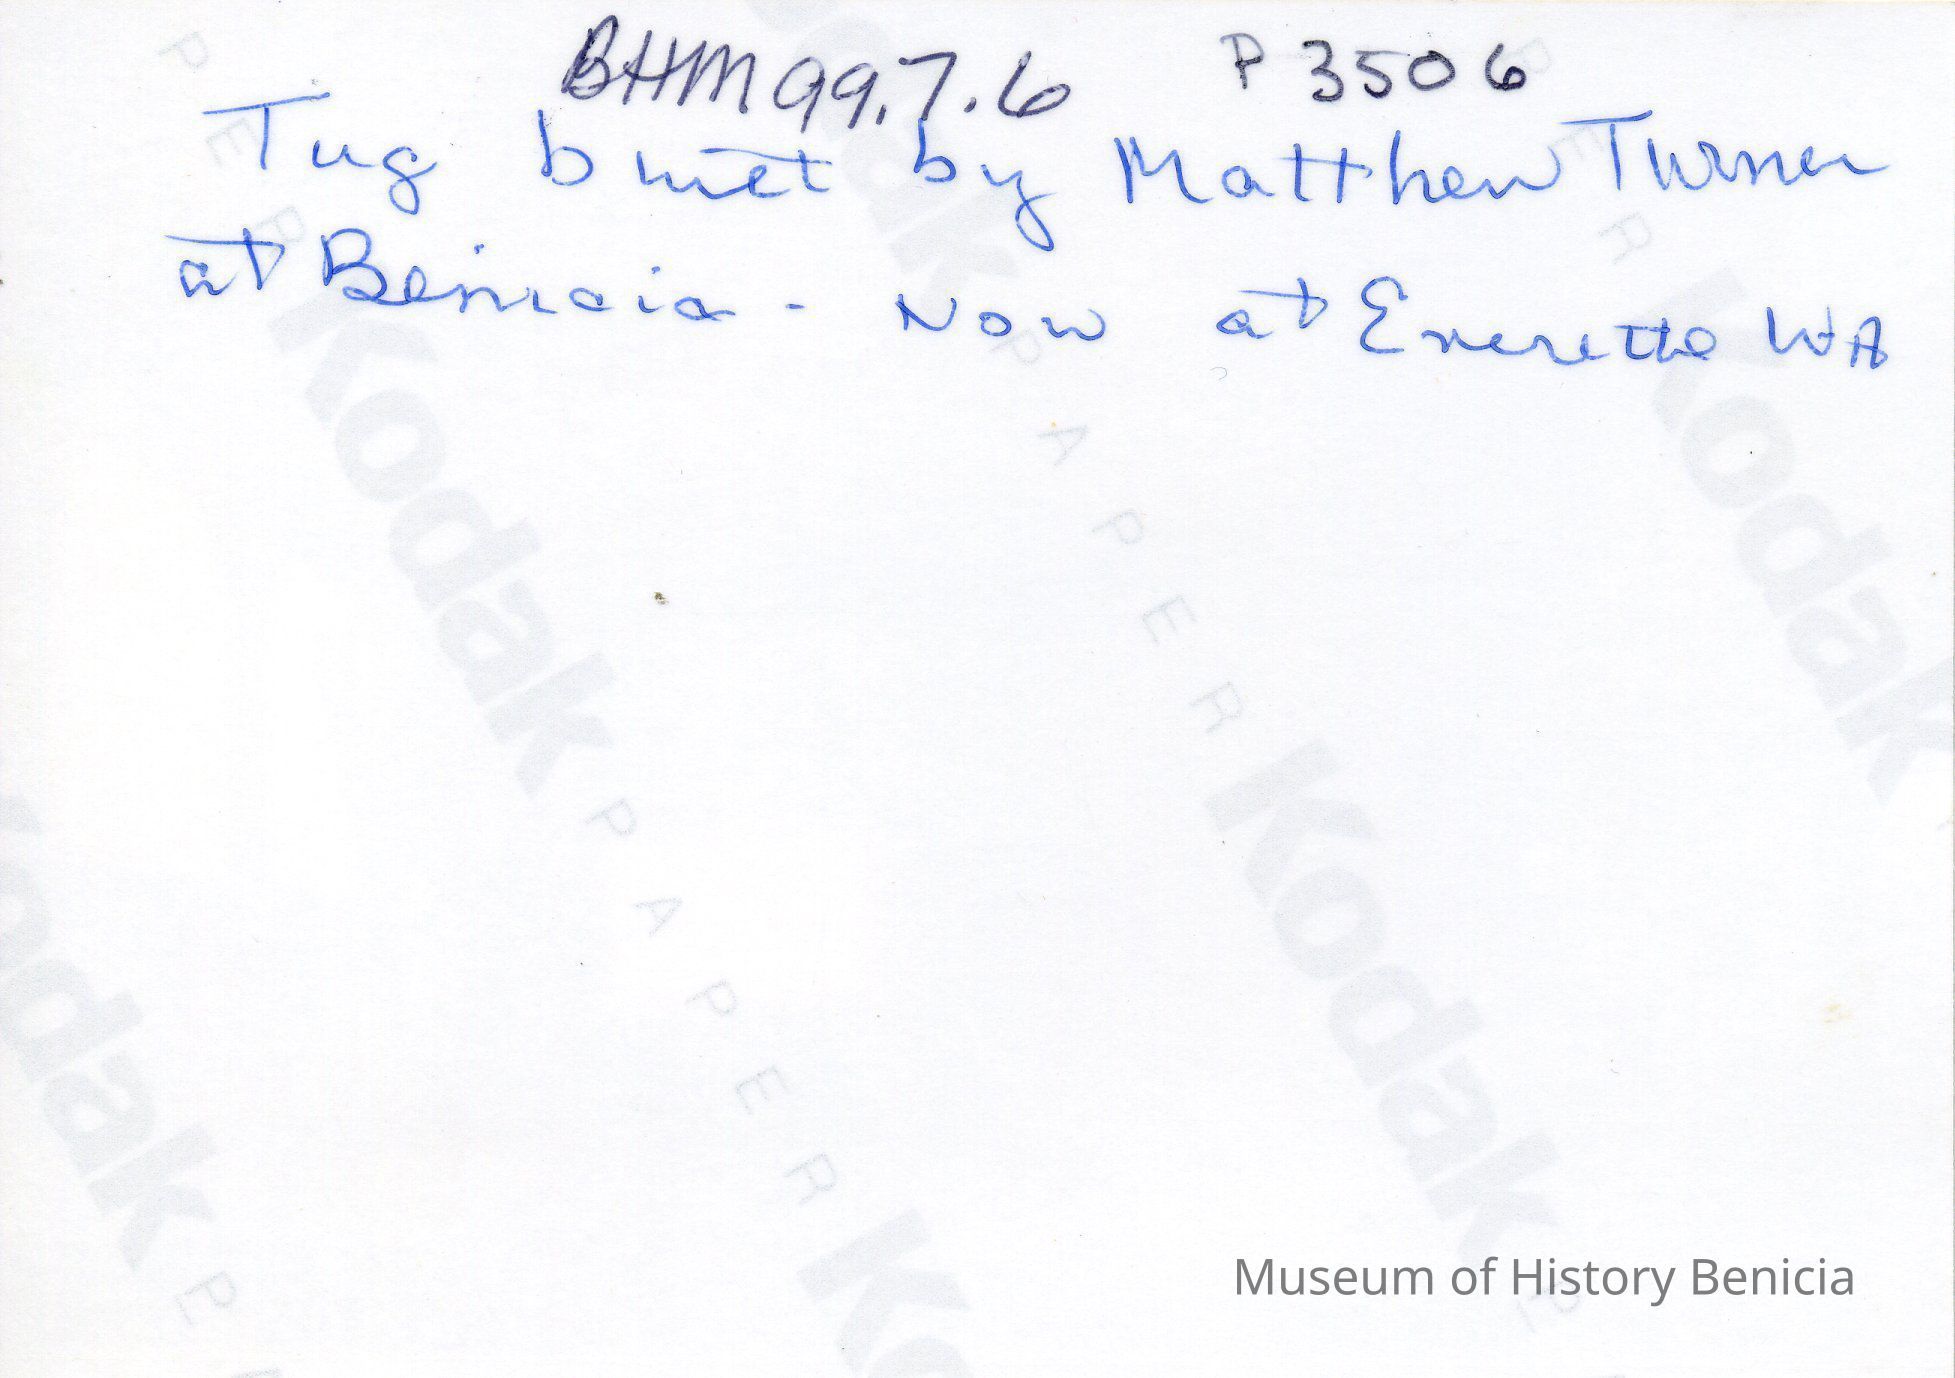 BHM99.7.6 P 3506
Tug built by Matthew Turner
at Benicia - Now at Everette WA
Kodak
PAPER
Kodak
PAPER
Kodak
Kodak
PAPER
Kodak
Museum of History Benicia